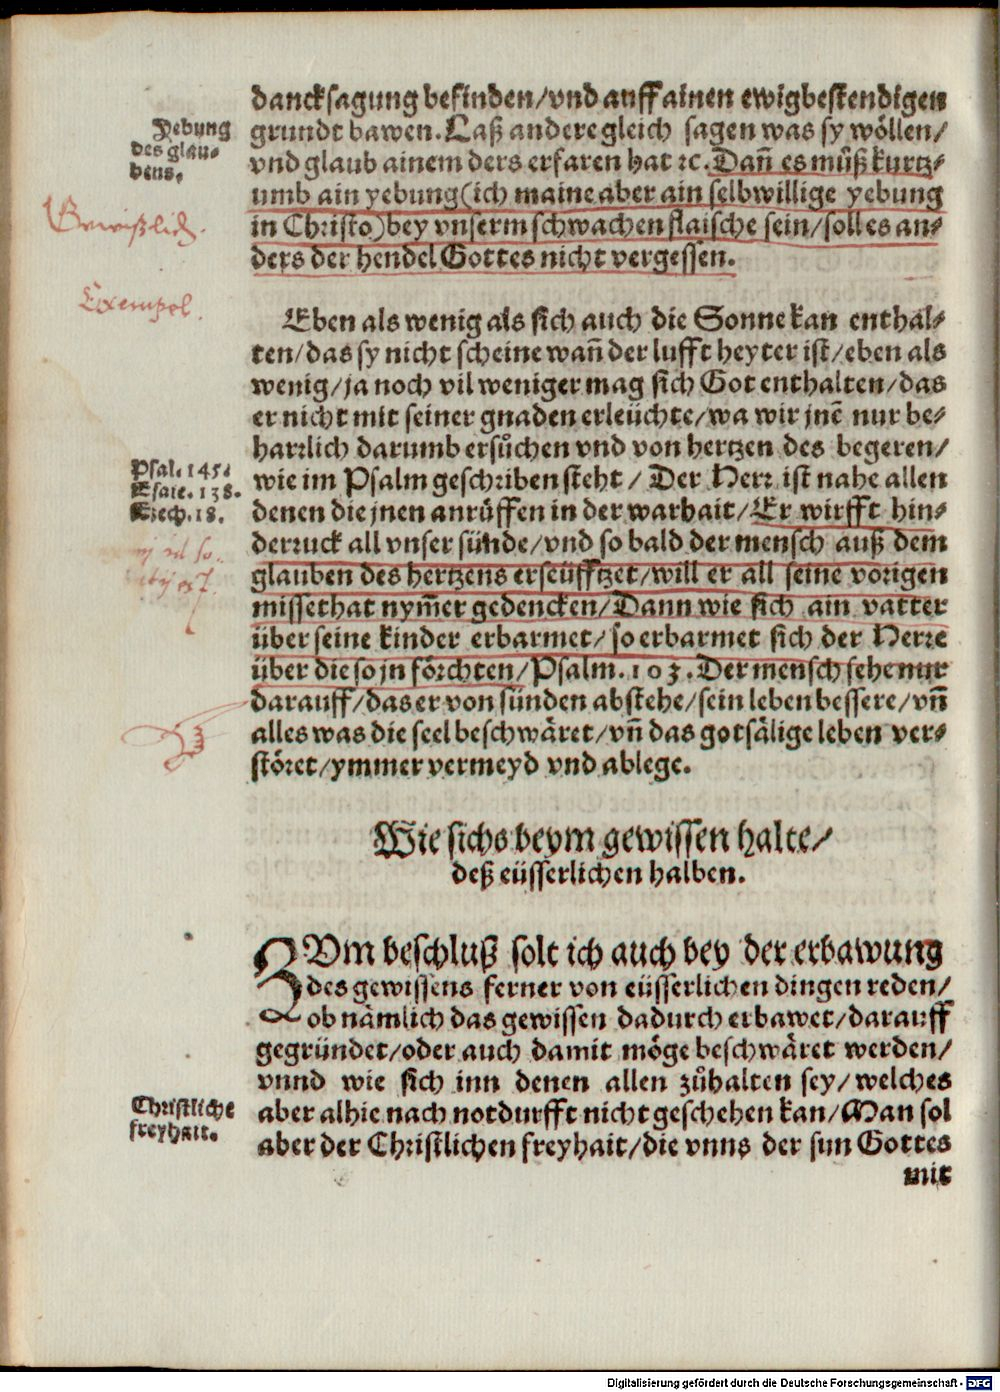 dancksagung befinden/vnd auff ainen ewigbestendigen
Yebung
des glau-
bens.
grundt bawen. Laß andere gleich sagen was sy wöllen/
vnd glaub ainem ders erfaren hat ꝛc. Dañ es můß kurtz-
umb ain yebung (ich maine aber ain selbwillige yebung
in Christo) bey vnserm schwachen flaische sein/solles an-
ders der hendel Gottes nicht vergessen.
Exempel.
Eben als wenig als sich auch die Sonne kan enthal-
ten/das sy nicht scheine wañ der lufft heyter ist/eben als
wenig/ja noch vil weniger mag sich Got enthalten/das
er nicht mit seiner gnaden erleüchte/wa wir jnē nur be-
harrlich darumb ersůchen vnd von hertzen des begeren/
Psal. 145.
Esaie. 138.
Ezech. 18.
wie im Psalm geschriben steht / Der Herr ist nahe allen
denen die jnen anrüffen in der warhait/Er wirfft hin-
derruck all vnser sünde/vnd so bald der mensch auß dem
glauben des hertzens erseüfftzet/will er all seine vorigen
missethat nym̄er gedencken/Dann wie sich ain vatter
über seine kinder erbarmet/so erbarmet sich der Herre
über die so jn förchten/Psalm. 103. Der mensch sehe nur
darauff/das er von sünden abstehe/sein leben bessere/vñ
alles was die seel beschwäret/vñ das gotsälige leben ver-
störet/ymmer vermeyd vnd ablege.
Wie sichs beym gewissen halte/
deß eüsserlichen halben.
ZVm beschluß solt ich auch bey der erbawung
des gewissens ferner von eüsserlichen dingen reden/
ob nämlich das gewissen dadurch erbawet/darauff
gegründet/oder auch damit möge beschwäret werden/
vnnd wie sich inn denen allen zůhalten sey/welches
Christliche
freyhait.
aber alhie nach notdurfft nicht geschehen kan/Man sol
aber der Christlichen freyhait/die vnns der sun Gottes
mit
Digitalisierung gefördert durch die Deutsche Forschungsgemeinschaft - DFG